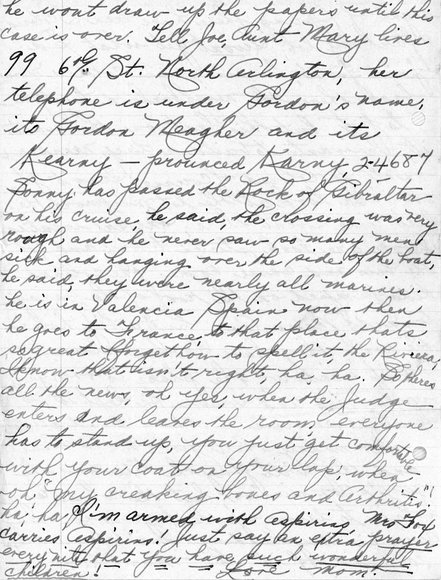 he wont draw up the papers until this
case is over. Tell Joe, Aunt Mary lives
99 6th St. North Arlington, her
telephone is under Gordon's name,
its Gordon Meagher and its
Kearny – prounced Karny, 2-4687
Sonny has passed the Rock of Gibraltar
on his cruise, he said, the crossing was very
rough and he never saw so many men
sick and hanging over the side of the boat,
he said, they were nearly all marines.
he is in Valencia Spain now then
he goes to France, to that place thats
so great I forget how to spell it, the Riviera,
I know that isn't right, ha. ha. So heres
all the news, oh yes, when the Judge
enters and leaves the room, everyone
has to stand up, you just get comfortable
with your coat on your lap, when
"oh" my creaking bones and Arthritis"!
ha! ha! I'm armed with aspirins, Mrs Fox
carries Aspirins! Just say an extra prayer
every nite that you have such wonderful
children! Love Mom.